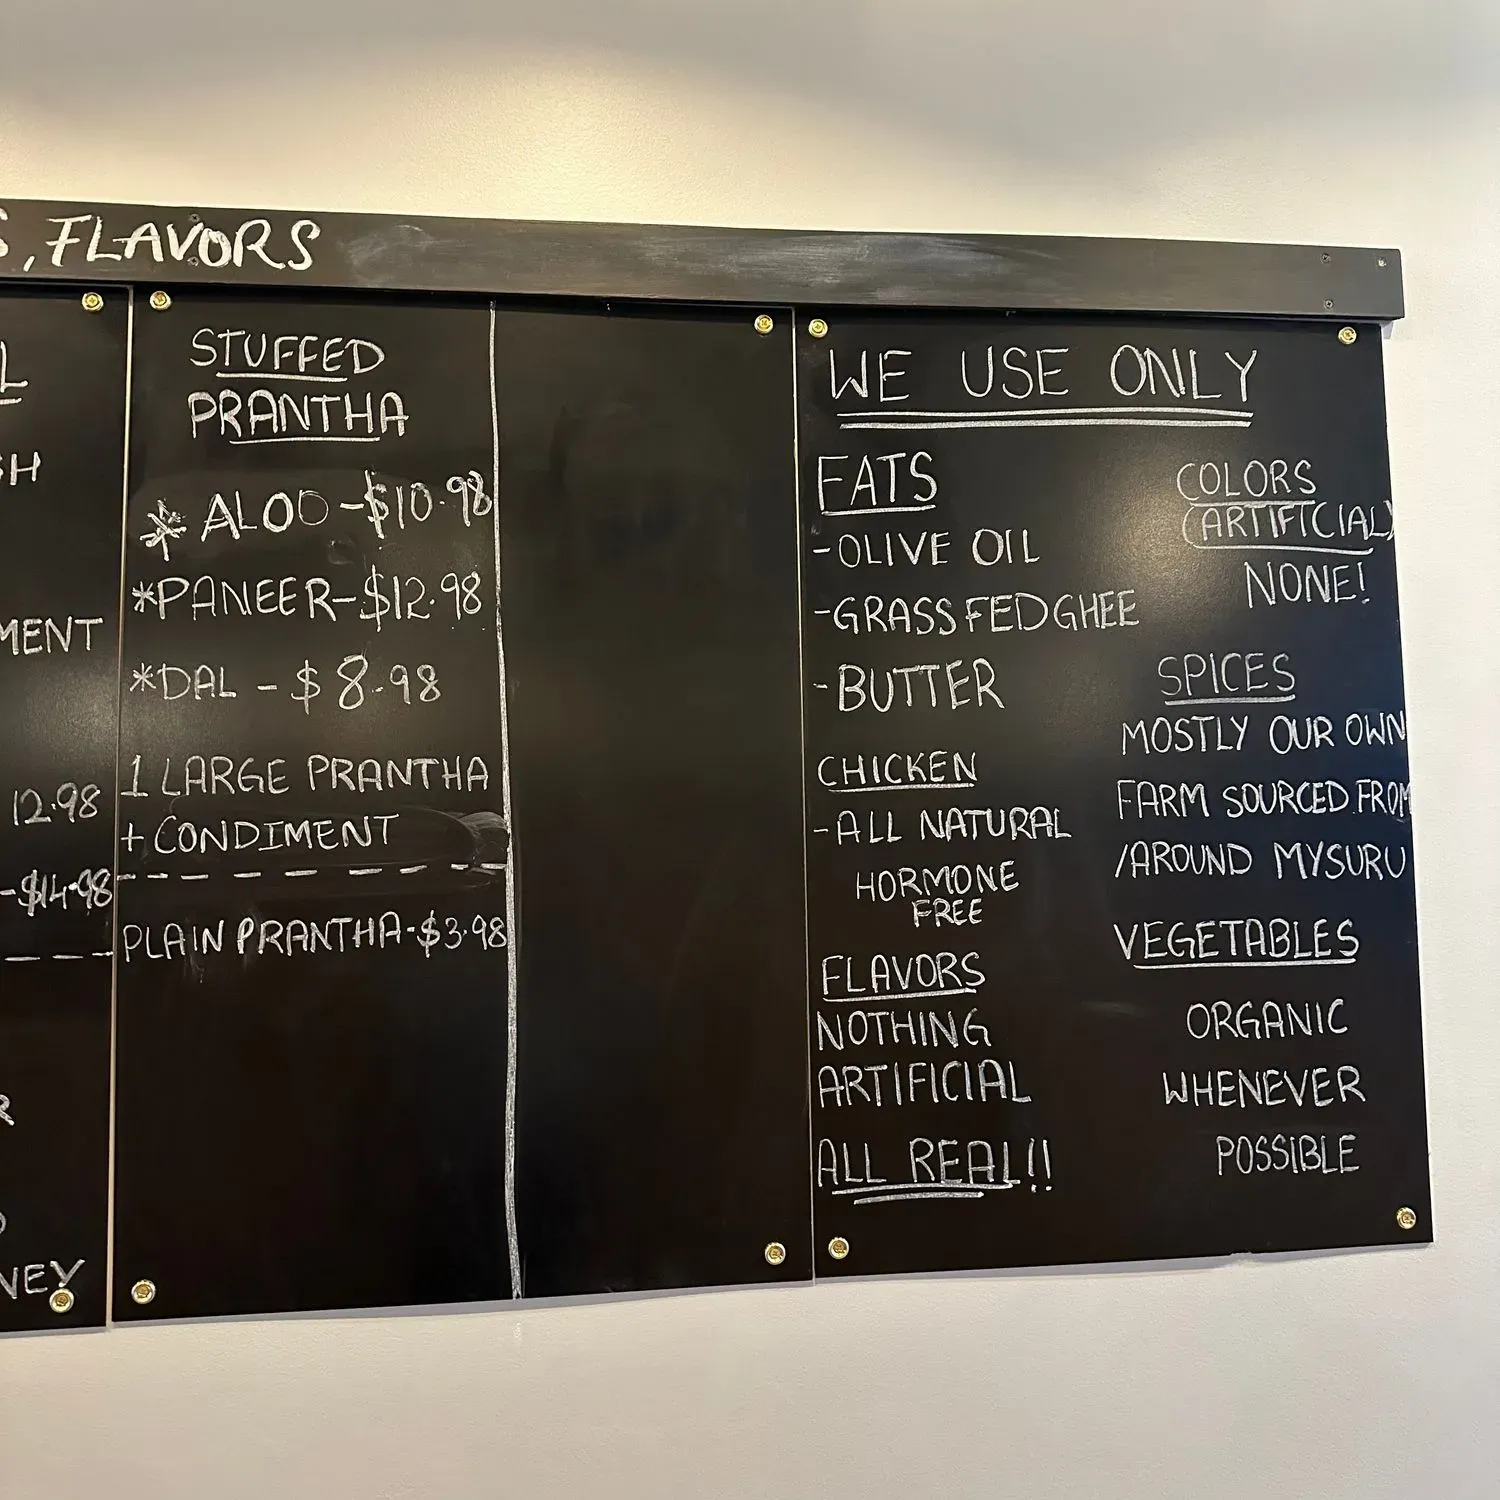 , FLAVORS
MENT
12.98
-$14.98
STUFFED
PRANTHA
* ALOO -$10.98
*PANEER-$12.98
*DAL - $8.98
1 LARGE PRANTHA
+ CONDIMENT
PLAIN PRANTHA-$3.98
WE USE ONLY
FATS
-OLIVE OIL
-GRASS FED GHEE
-BUTTER
CHICKEN
-ALL NATURAL
HORMONE
FREE
FLAVORS
NOTHING
ARTIFICIAL
ALL REAL!!
COLORS
(ARTIFICIAL)
NONE!
SPICES
MOSTLY OUR OWN
FARM SOURCED FROM
/AROUND MYSURU
VEGETABLES
ORGANIC
WHENEVER
POSSIBLE